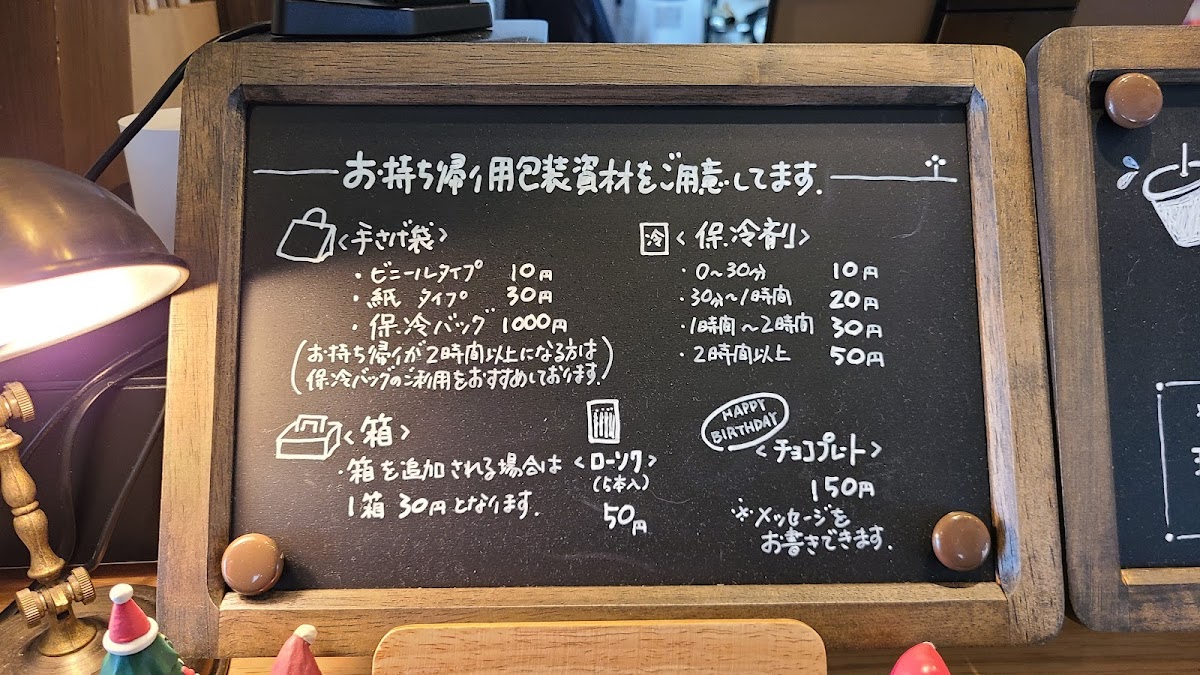 お持ち帰り用包装資材をご用意してます.
<手さげ袋>
・ビニールタイプ 10円
・紙 タイプ 30円
・保冷バッグ 1000円
(お持ち帰りが2時間以上になる方は
保冷バッグのご利用をおすすめしております.)
冷 <保冷剤>
・0〜30分 10円
・30分〜1時間 20円
・1時間〜2時間 30円
・2時間以上 50円
<箱>
・箱を追加される場合は
1箱 30円となります.
<ローソク>
(5本入)
50円
HAPPY
BIRTHDAY
<チョコプレート>
150円
※メッセージを
お書きできます.